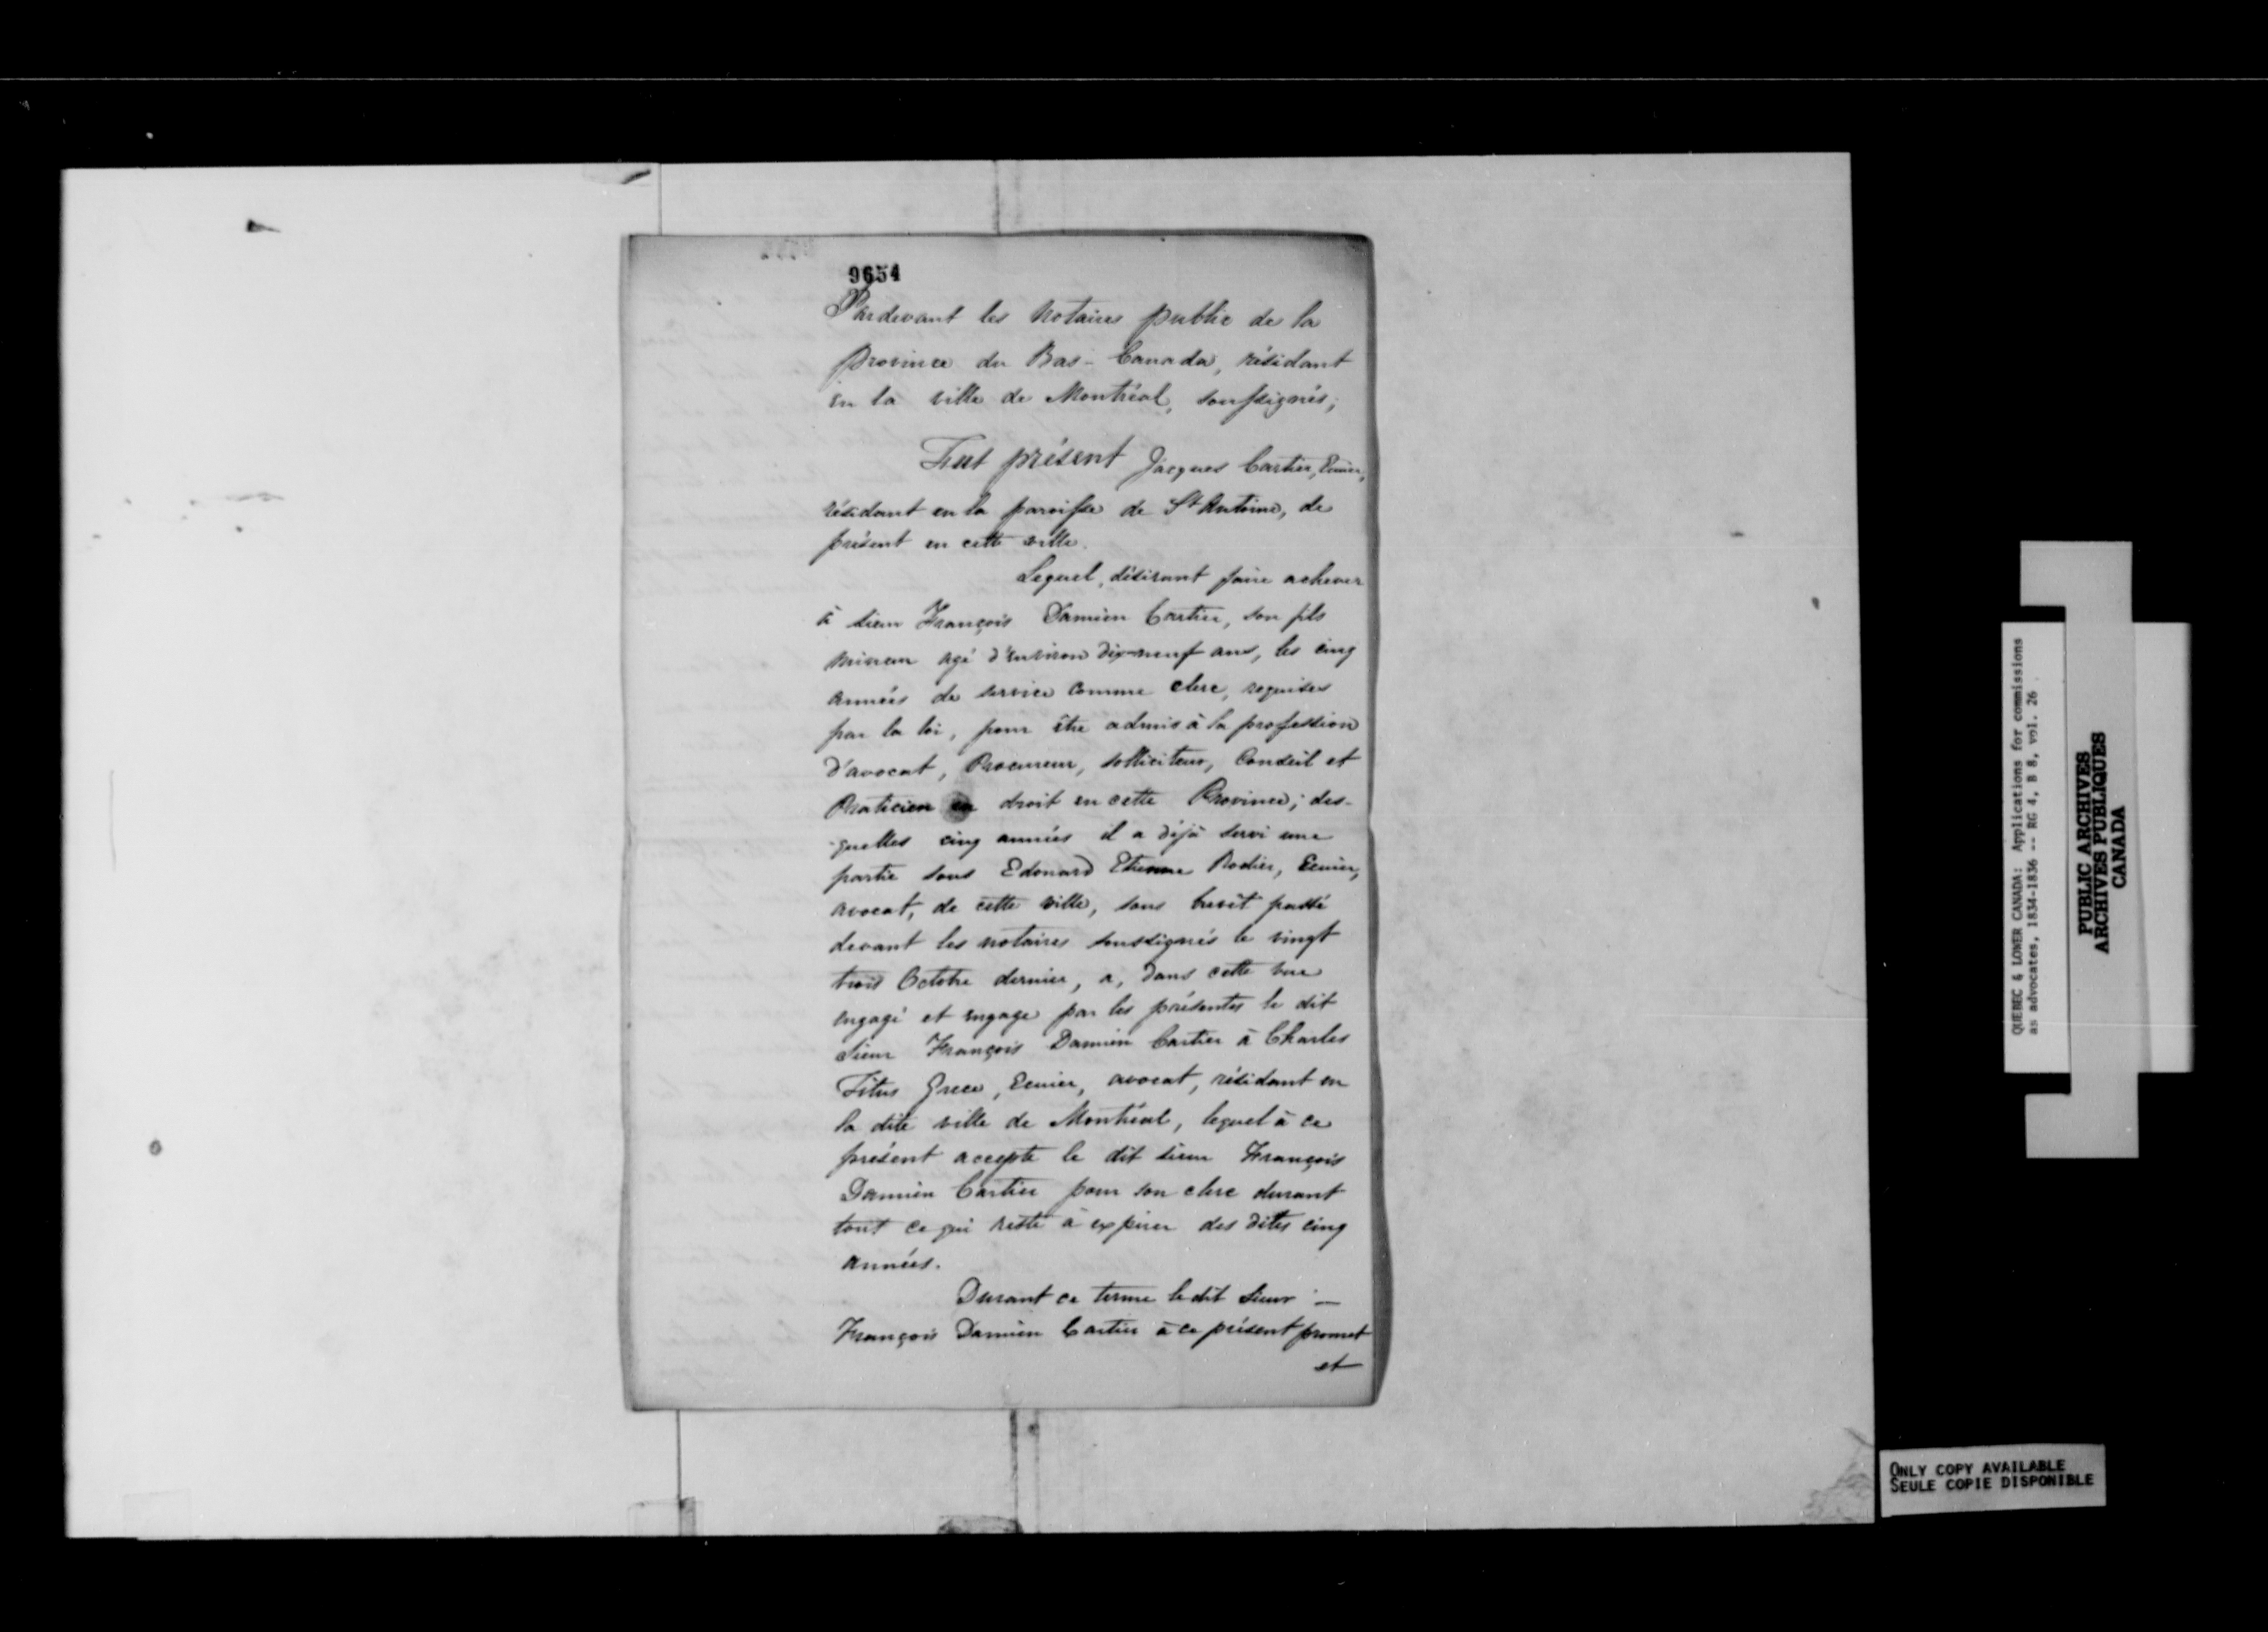 9654
Pardevant les Notaires public de la
Province du Bas-Canada, résidant
en la ville de Montréal, soussignés;
Fut présent Jacques Cartier, Ecuier,
résidant en la paroisse de St Antoine, de
présent en cette ville.
Lequel, désirant faire achever
à sieur François Damien Cartier, son fils
mineur agé d'environ dix-neuf ans, les cinq
années de service comme clerc, requises
par la loi, pour être admis à la profession
d'avocat, Procureur, solliciteur, Conseil et
Praticien en droit en cette Province; des-
quelles cinq années il a déjà servi une
partie sous Edouard Etienne Rodier, Ecuier,
avocat, de cette ville, sous brevêt passé
devant les notaires soussignés le vingt
trois Octobre dernier, a, dans cette vue
engagé et engage par les présentes le dit
Sieur François Damien Cartier à Charles
Titus Grece, Ecuier, avocat, résidant en
la dite ville de Montréal, lequel à ce
présent accepte le dit sieur François
Damien Cartier pour son clerc durant
tout ce qui reste à expirer des dites cinq
années.
Durant ce terme le dit Sieur —
François Damien Cartier à ce présent promet
et
QUEBEC & LOWER CANADA: Applications for commissions
as advocates, 1834-1836 -- RG 4, B 8, vol. 26
PUBLIC ARCHIVES
ARCHIVES PUBLIQUES
CANADA
ONLY COPY AVAILABLE
SEULE COPIE DISPONIBLE